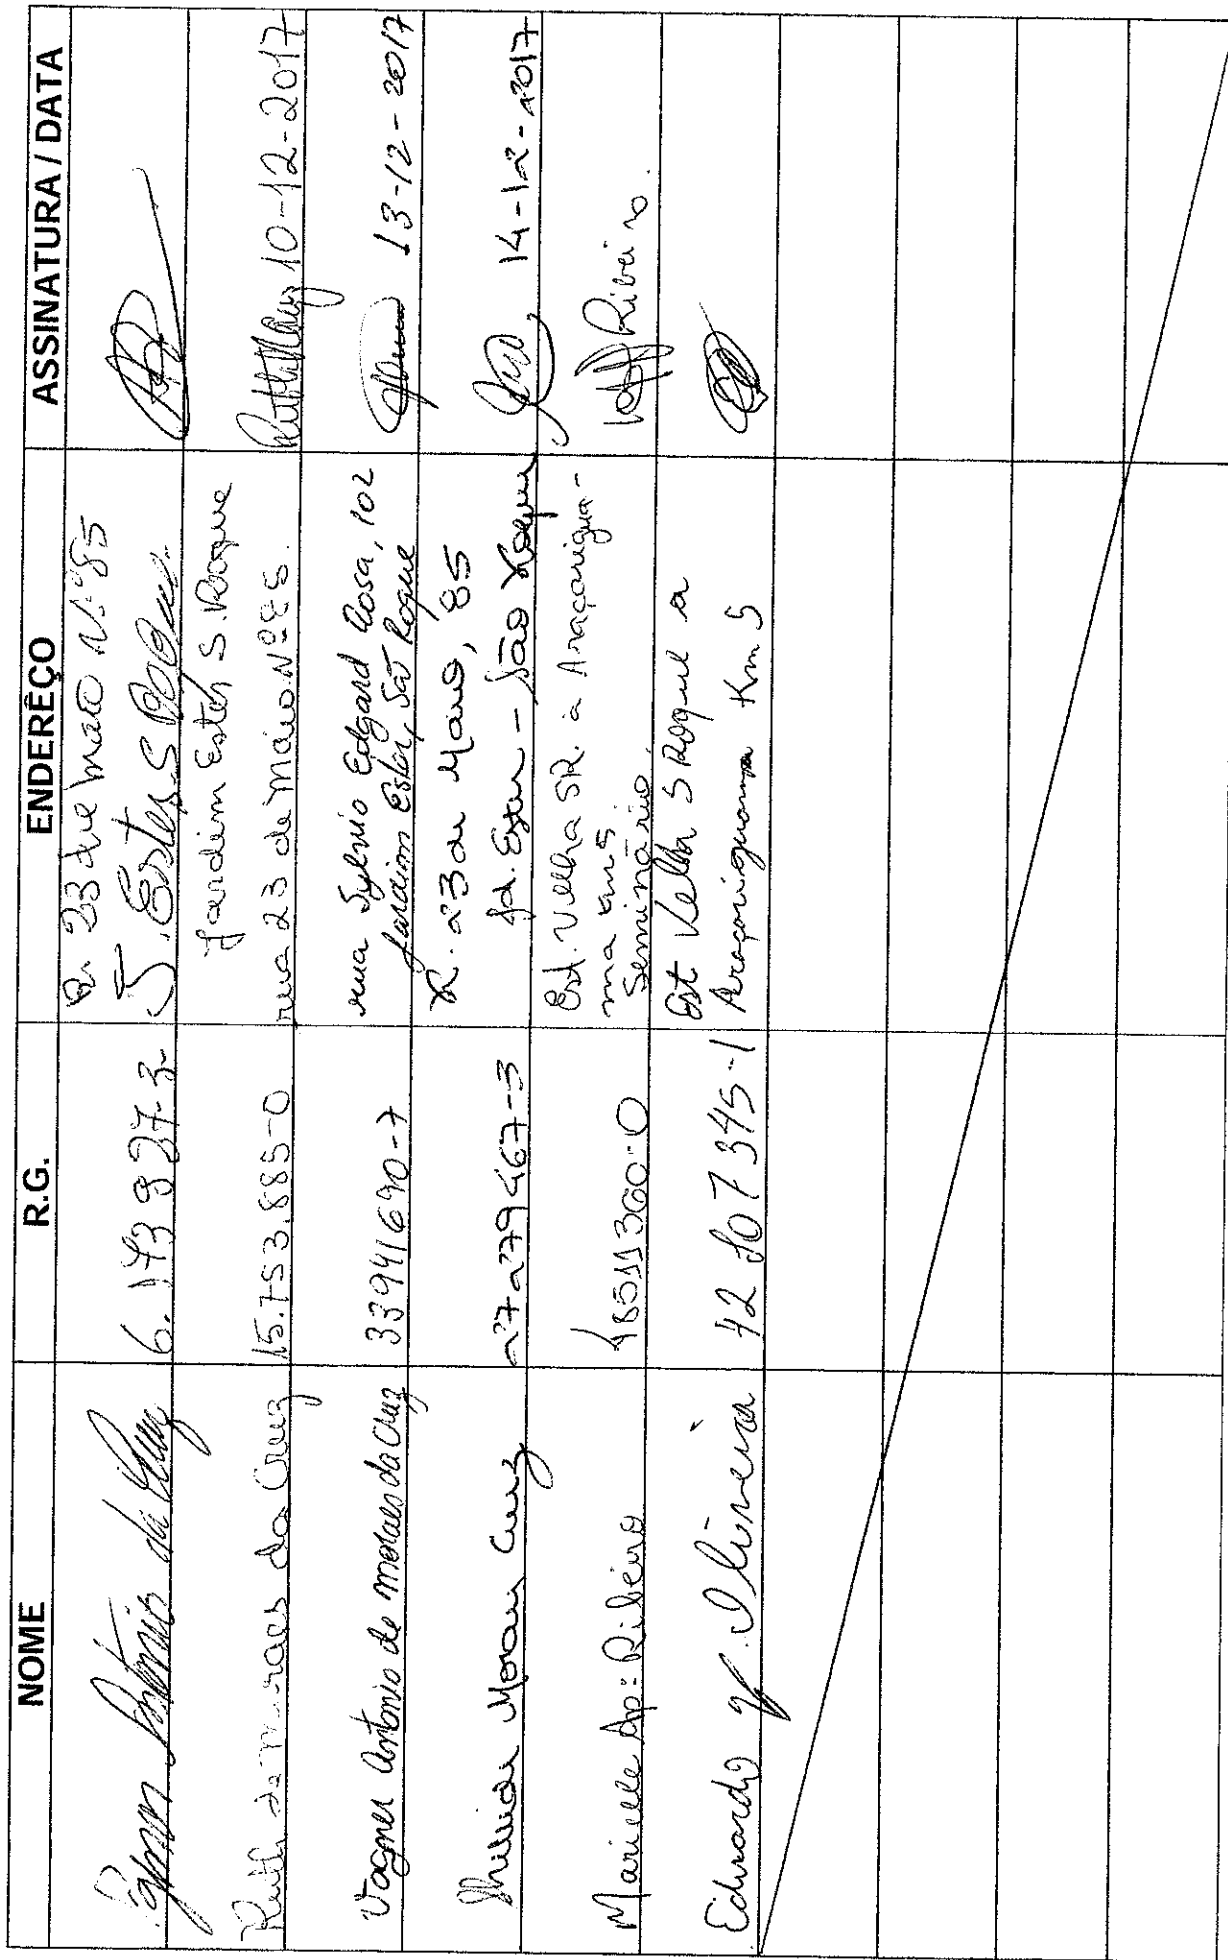 NOME R.G. ENDERÊÇO ASSINATURA / DATA
Antônio da 6.143 937-2 R. 23 de maio Nº 85
J. Ester S Roque
Ruth de moraes da Cruz 15.753.885-0 Jardim Ester S. Roque
rua 23 de maio Nº 85. Ruth 10-12-2017
Vagner Antonio de moraes da Cruz 33941690-7 rua Sylvio Edgard Rosa, 102
Jardim Ester, São Roque 13-12-2017
Moraes Cruz 27279467-3 R. 23 de Maio, 85
Jd. Ester - São Roque 14-12-2017
Marielle Ap: Ribeiro 48511360-0 Est. Velha SR. a Araçarigua-
ma km 5
Seminário. Ribeiro.
Eduardo Oliveira 42 107 345-1 Est Velha S Roque a
Araçariguama Km 5